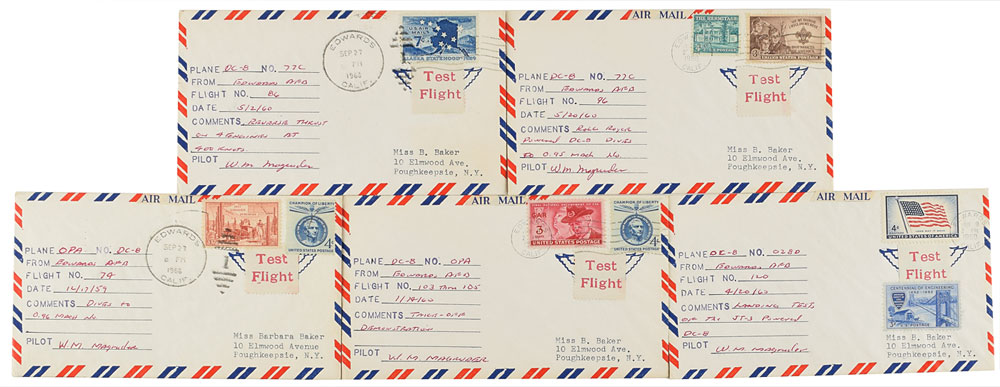 AIR MAIL
EDWARDS
SEP 27
PM
1960
CALIF.
U.S. AIR MAIL
7¢
ALASKA STATEHOOD • 1959
Test
Flight
PLANE DC-8 NO. 77C
FROM EDWARDS AFB
FLIGHT NO. 86
DATE 5/2/60
COMMENTS REVERSE THRUST
ON 4 ENGINES AT
400 KNOTS
PILOT W.M. Magruder
Miss B. Baker
10 Elmwood Ave.
Poughkeepsie, N.Y.
AIR MAIL
THE HERMITAGE
UNITED STATES POSTAGE
Test
Flight
PLANE DC-8 NO. 77C
FROM EDWARDS AFB
FLIGHT NO. 96
DATE 5/20/60
COMMENTS ROLLS ROYCE
POWERED DC-8 DIVES
TO 0.95 MACH NO.
PILOT W.M. Magruder
Miss B. Baker
10 Elmwood Ave.
Poughkeepsie, N.Y.
AIR MAIL
EDWARDS
SEP 27
PM
1960
CALIF.
CHAMPION OF LIBERTY
4¢
UNITED STATES POSTAGE
Test
Flight
PLANE OPA NO. DC-8
FROM EDWARDS AFB
FLIGHT NO. 79
DATE 12/17/59
COMMENTS DIVES TO
0.96 MACH NO.
PILOT W.M. Magruder
Miss Barbara Baker
10 Elmwood Avenue
Poughkeepsie, N.Y.
AIR MAIL
GAR
3
CENTS
UNITED STATES POSTAGE
CHAMPION OF LIBERTY
4¢
UNITED STATES POSTAGE
Test
Flight
PLANE DC-8 NO. OPA
FROM EDWARDS AFB
FLIGHT NO. 103 THRU 105
DATE 1/14/60
COMMENTS TAKE-OFF
DEMONSTRATION
PILOT W.M. MAGRUDER
Miss B. Baker
10 Elmwood Ave.
Poughkeepsie, N.Y.
AIR MAIL
4¢
UNITED STATES OF AMERICA
Test
Flight
CENTENNIAL OF ENGINEERING
3¢
U.S. POSTAGE
PLANE DC-8 NO.
FROM EDWARDS AFB
FLIGHT NO. 120
DATE 4/20/60
COMMENTS LANDING TESTS
OF THE JT-3 POWERED
DC-8
PILOT W.M. Magruder
Miss B. Baker
10 Elmwood Ave.
Poughkeepsie, N.Y.